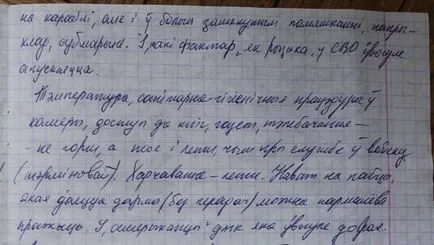 на караблі, але і ў больш замкнутым памяшканьні, напры-
клад, субмарыне. І, такі фактар, як рызыка, у СВО ўвогуле
апускаецца.
Тэмпература, санітарна-гігіенічныя працэдуры ў
камеры, доступ да кніг, газет, тэлебачання –
– не горш, а тое і лепш, чым пры службе ў войску
(тэрміновай). Харчаванне – лепш. Нават на пайцы,
якая даецца дарма (без перадач) можна нармалёва
пражыць. І,              дык яна ўвогуле добрае.